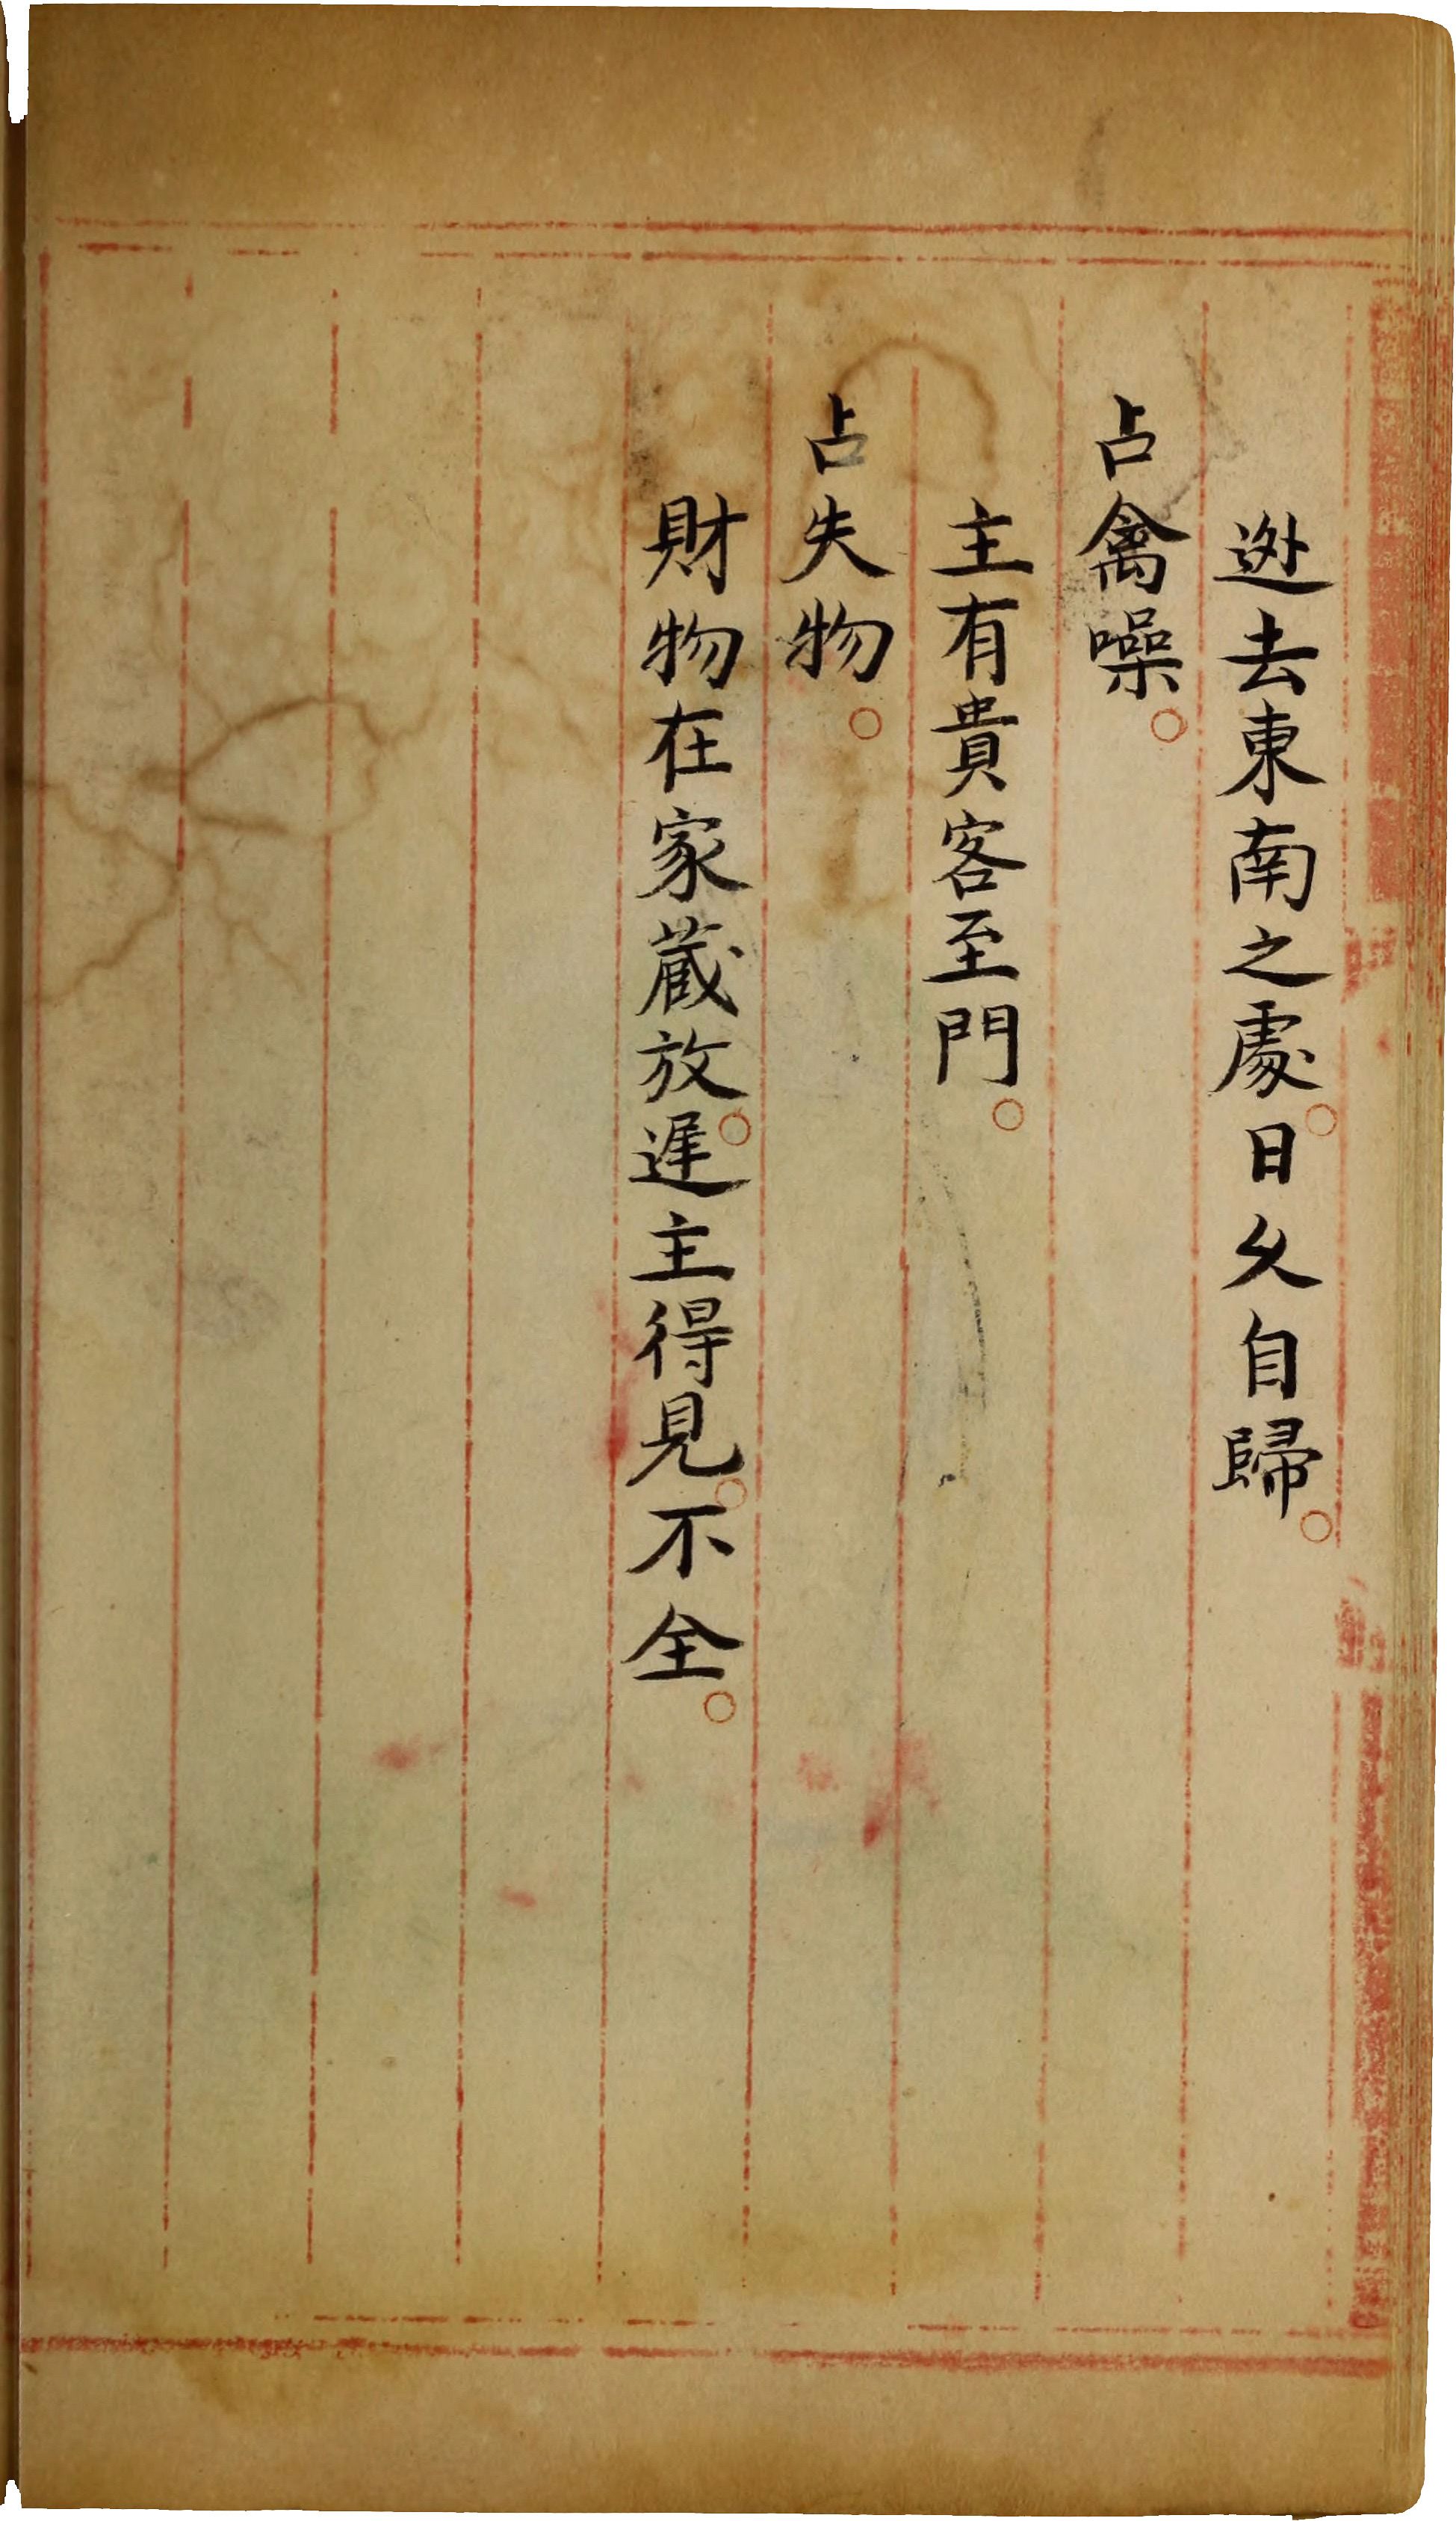 迯去東南之處。日久自歸。
占禽噪。
主有貴客至門。
占失物。
財物在家蔵放。遲主得見。不全。